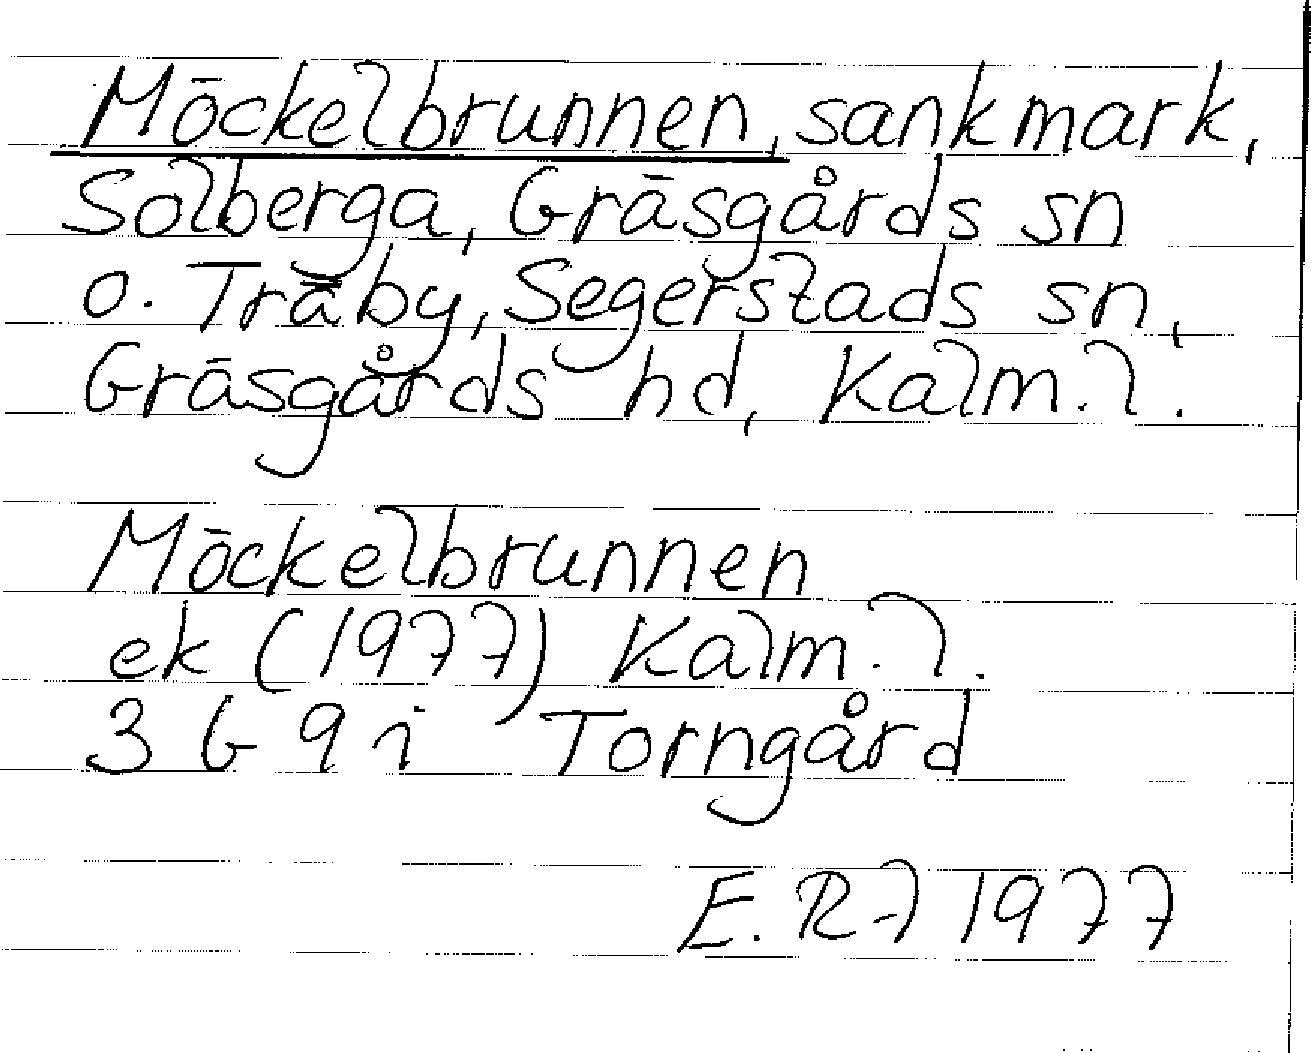 Möckelbrunnen, sankmark,
Solberga, Gräsgårds sn
o. Träby, Segerstads sn,
Gräsgårds hd, Kalm. l.
Möckelbrunnen
ek (1977) Kalm. l.
3 G 9 i Torngård
E. R-f 1977